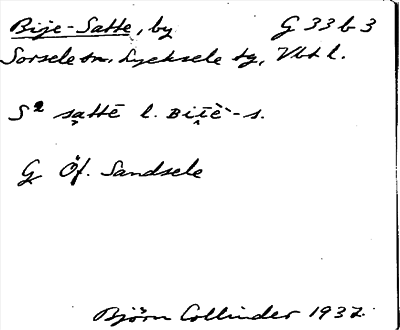 Bije-Satte, by G 33 b 3
Sorsele sn. Lycksele tg, Vbt l.
S² sạttē l. Bịt̄è-s.
G Öf. Sandsele
Björn Collinder 1937.